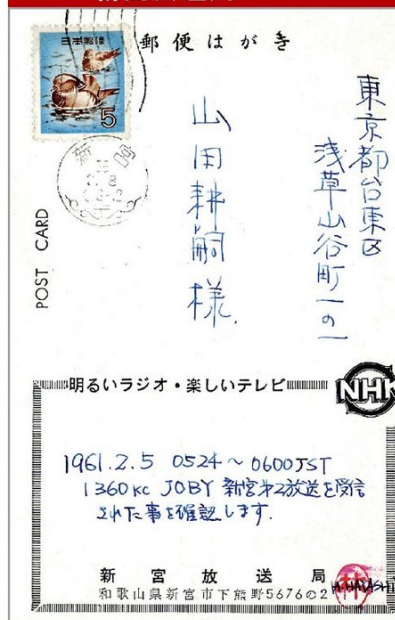 郵便はがき
日本郵便
5
新宮
POST CARD
東京都台東区
浅草山谷町一の一
山田耕嗣様.
明るいラジオ・楽しいテレビ
NHK
1961.2.5 0524～0600JST
1360kc JOBY 新宮第2放送を受信
された事を確認します.
新宮放送局
和歌山県新宮市下熊野5676の2
H.HAYASHI
林